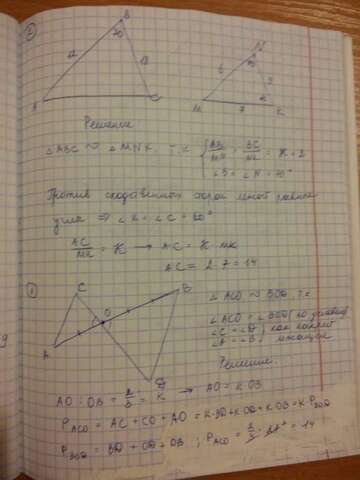 ②
B
70
12
18
A
C
N
6
9
M
7
K
Решение
△ABC ∾ △MNK, т.к. { AB/MN = BC/NK = K = 2
∠B = ∠N = 70°
Против сходственных сторон лежат равные
углы ⇒ ∠K = ∠C = 60°
AC/MK = K → AC = K · MK
AC = 2 · 7 = 14
①
C
B
O
A
D
△ACO ∾ BOD т.к
∠C = ∠D
∠A = ∠B
как накрест
лежащие
Решение.
AO : OB = 2/3 = K → AO = K · OB
P ACO = AC + CO + AO = K·BD + K·OD + K·OB = K P BOD
P BOD = BD + OD + OB ; P ACO = 2/3 · 21 = 14